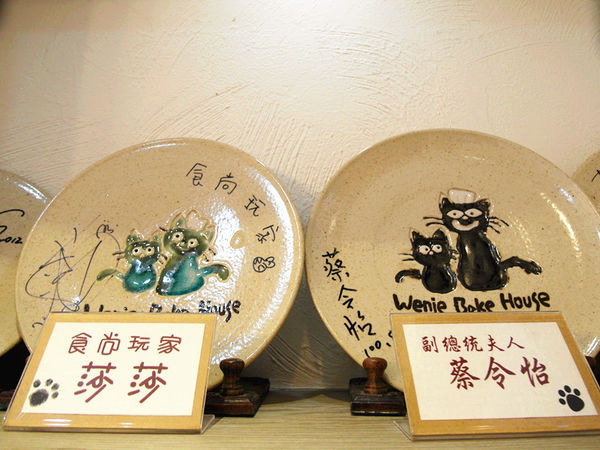 2012
食尚玩家
Wenie Bake House
食尚玩家
莎莎
蔡令怡
Wenie Bake House
副總統夫人
蔡令怡